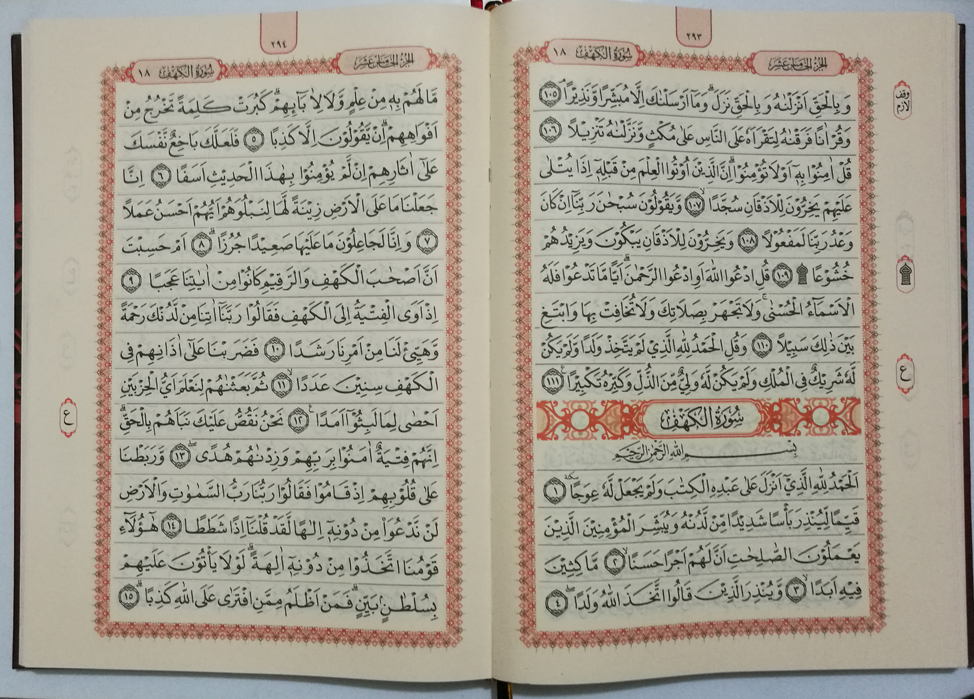 ٢٩٣
سُورَةُ الْكَهْفِ ١٨
الجزء الخامس عشر
وَبِالْحَقِّ اَنْزَلْنٰهُ وَبِالْحَقِّ نَزَلَۗ وَمَآ اَرْسَلْنٰكَ اِلَّا مُبَشِّرًا وَّنَذِيْرًاۘ ١٠٥
وقف لازم
وَقُرْاٰنًا فَرَقْنٰهُ لِتَقْرَاَهٗ عَلَى النَّاسِ عَلٰى مُكْثٍ وَّنَزَّلْنٰهُ تَنْزِيْلًا ١٠٦
قُلْ اٰمِنُوْا بِهٖٓ اَوْ لَا تُؤْمِنُوْاۗ اِنَّ الَّذِيْنَ اُوْتُوا الْعِلْمَ مِنْ قَبْلِهٖٓ اِذَا يُتْلٰى
عَلَيْهِمْ يَخِرُّوْنَ لِلْاَذْقَانِ سُجَّدًاۙ ١٠٧ وَّيَقُوْلُوْنَ سُبْحٰنَ رَبِّنَآ اِنْ كَانَ
وَعْدُ رَبِّنَا لَمَفْعُوْلًا ١٠٨ وَيَخِرُّوْنَ لِلْاَذْقَانِ يَبْكُوْنَ وَيَزِيْدُهُمْ
خُشُوْعًا ۩ ١٠٩ قُلِ ادْعُوا اللّٰهَ اَوِ ادْعُوا الرَّحْمٰنَۗ اَيًّا مَّا تَدْعُوْا فَلَهُ
الْاَسْمَاۤءُ الْحُسْنٰىۚ وَلَا تَجْهَرْ بِصَلَاتِكَ وَلَا تُخَافِتْ بِهَا وَابْتَغِ
بَيْنَ ذٰلِكَ سَبِيْلًا ١١٠ وَقُلِ الْحَمْدُ لِلّٰهِ الَّذِيْ لَمْ يَتَّخِذْ وَلَدًا وَّلَمْ يَكُنْ
لَّهٗ شَرِيْكٌ فِى الْمُلْكِ وَلَمْ يَكُنْ لَّهٗ وَلِيٌّ مِّنَ الذُّلِّ وَكَبِّرْهُ تَكْبِيْرًا ١١١
ع
سُورَةُ الْكَهْفِ
بِسْمِ اللّٰهِ الرَّحْمٰنِ الرَّحِيْمِ
اَلْحَمْدُ لِلّٰهِ الَّذِيْٓ اَنْزَلَ عَلٰى عَبْدِهِ الْكِتٰبَ وَلَمْ يَجْعَلْ لَّهٗ عِوَجًاۜ ١
قَيِّمًا لِّيُنْذِرَ بَأْسًا شَدِيْدًا مِّنْ لَّدُنْهُ وَيُبَشِّرَ الْمُؤْمِنِيْنَ الَّذِيْنَ
يَعْمَلُوْنَ الصّٰلِحٰتِ اَنَّ لَهُمْ اَجْرًا حَسَنًاۙ ٢ مَّاكِثِيْنَ
فِيْهِ اَبَدًاۙ ٣ وَّيُنْذِرَ الَّذِيْنَ قَالُوا اتَّخَذَ اللّٰهُ وَلَدًاۖ ٤
٢٩٤
سُورَةُ الْكَهْفِ ١٨
الجزء الخامس عشر
مَّا لَهُمْ بِهٖ مِنْ عِلْمٍ وَّلَا لِاٰبَاۤىِٕهِمْۗ كَبُرَتْ كَلِمَةً تَخْرُجُ مِنْ
اَفْوَاهِهِمْۗ اِنْ يَّقُوْلُوْنَ اِلَّا كَذِبًا ٥ فَلَعَلَّكَ بَاخِعٌ نَّفْسَكَ
عَلٰٓى اٰثَارِهِمْ اِنْ لَّمْ يُؤْمِنُوْا بِهٰذَا الْحَدِيْثِ اَسَفًا ٦ اِنَّا
جَعَلْنَا مَا عَلَى الْاَرْضِ زِيْنَةً لَّهَا لِنَبْلُوَهُمْ اَيُّهُمْ اَحْسَنُ عَمَلًا
٧ وَاِنَّا لَجَاعِلُوْنَ مَا عَلَيْهَا صَعِيْدًا جُرُزًاۗ ٨ اَمْ حَسِبْتَ
اَنَّ اَصْحٰبَ الْكَهْفِ وَالرَّقِيْمِ كَانُوْا مِنْ اٰيٰتِنَا عَجَبًا ٩
اِذْ اَوَى الْفِتْيَةُ اِلَى الْكَهْفِ فَقَالُوْا رَبَّنَآ اٰتِنَا مِنْ لَّدُنْكَ رَحْمَةً
وَّهَيِّئْ لَنَا مِنْ اَمْرِنَا رَشَدًا ١٠ فَضَرَبْنَا عَلٰٓى اٰذَانِهِمْ فِى
الْكَهْفِ سِنِيْنَ عَدَدًاۙ ١١ ثُمَّ بَعَثْنٰهُمْ لِنَعْلَمَ اَيُّ الْحِزْبَيْنِ
اَحْصٰى لِمَا لَبِثُوْٓا اَمَدًا ١٢ نَحْنُ نَقُصُّ عَلَيْكَ نَبَاَهُمْ بِالْحَقِّۗ
ع
اِنَّهُمْ فِتْيَةٌ اٰمَنُوْا بِرَبِّهِمْ وَزِدْنٰهُمْ هُدًىۖ ١٣ وَّرَبَطْنَا
عَلٰى قُلُوْبِهِمْ اِذْ قَامُوْا فَقَالُوْا رَبُّنَا رَبُّ السَّمٰوٰتِ وَالْاَرْضِ
لَنْ نَّدْعُوَا۟ مِنْ دُوْنِهٖٓ اِلٰهًا لَّقَدْ قُلْنَآ اِذًا شَطَطًا ١٤ هٰٓؤُلَاۤءِ
قَوْمُنَا اتَّخَذُوْا مِنْ دُوْنِهٖٓ اٰلِهَةًۗ لَوْلَا يَأْتُوْنَ عَلَيْهِمْ
بِسُلْطٰنٍۢ بَيِّنٍۗ فَمَنْ اَظْلَمُ مِمَّنِ افْتَرٰى عَلَى اللّٰهِ كَذِبًاۗ ١٥